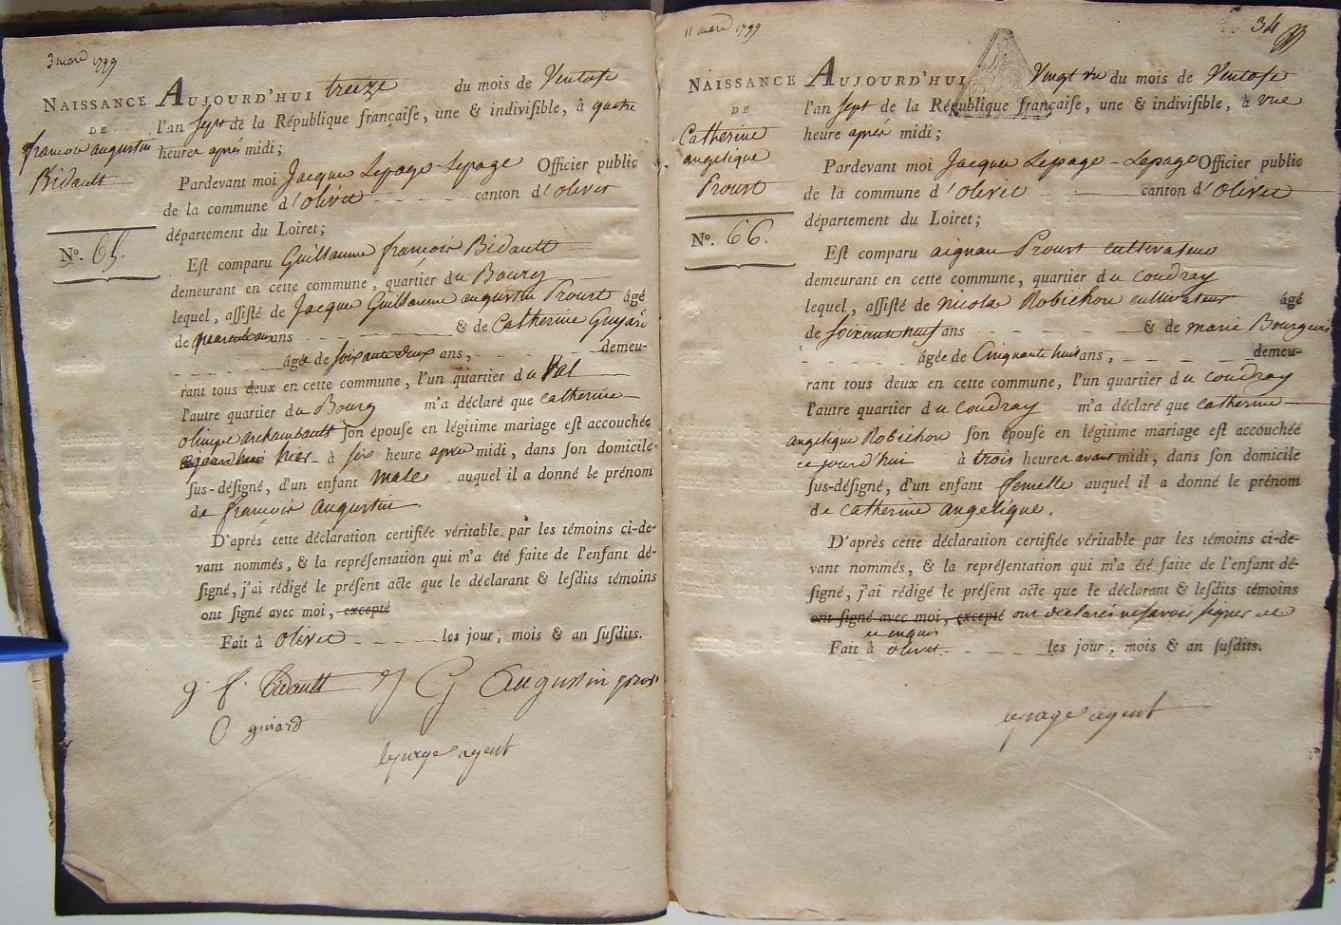 3 mars 1799
NAISSANCE
DE
francois augustin
Bidault
No. 65.
AUJOURD'HUI treize du mois de Ventose
l'an sept de la République françaiſe, une & indiviſible, à quatre
heures après midi;
Pardevant moi Jacques Lepage Lepage Officier public
de la commune d'olivet canton d'olivet
département du Loiret;
Eſt comparu Guillaume francois Bidault
demeurant en cette commune, quartier du Bourg
lequel, aſſiſté de Jacque Guillaume augustin Proust âgé
de ans & de Catherine Guyard
âgée de soixante deux ans, demeu-
rant tous deux en cette commune, l'un quartier du Val
l'autre quartier du Bourg m'a déclaré que catherine
olimpe archambault ſon épouſe en légitime mariage eſt accouchée
hier à six heure après midi, dans ſon domicile
ſus-déſigné, d'un enfant male auquel il a donné le prénom
de francois augustin
D'après cette déclaration certifiée véritable par les témoins ci-de-
vant nommés, & la repréſentation qui m'a été faite de l'enfant dé-
ſigné, j'ai rédigé le préſent acte que le déclarant & leſdits témoins
ont ſigné avec moi, excepté
Fait à olivet les jour, mois & an ſuſdits.
g f. Bidault J G Augustin prous
C guiard
lepage agent
11 mars 1799
34
NAISSANCE
DE
Catherine
angelique
Proust
No. 66.
AUJOURD'HUI Vingt un du mois de Ventose
l'an sept de la République françaiſe, une & indiviſible, à une
heure après midi;
Pardevant moi Jacques Lepage - Lepage Officier public
de la commune d'olivet canton d'olivet
département du Loiret;
Eſt comparu aignan Proust cultivateur
demeurant en cette commune, quartier du coudray
lequel, aſſiſté de nicolas Robichon cultivateur âgé
de soixante neuf ans & de marie Bourgeois
âgée de Cinquante huit ans, demeu-
rant tous deux en cette commune, l'un quartier du coudray
l'autre quartier du coudray m'a déclaré que catherine
angelique Robichon ſon épouſe en légitime mariage eſt accouchée
ce jourd'hui à trois heures avant midi, dans ſon domicile
ſus-déſigné, d'un enfant femelle auquel il a donné le prénom
de catherine angelique.
D'après cette déclaration certifiée véritable par les témoins ci-de-
vant nommés, & la repréſentation qui m'a été faite de l'enfant dé-
ſigné, j'ai rédigé le préſent acte que le déclarant & leſdits témoins
ont ſigné avec moi, excepté ont declarés ne savoir signer de
ce enquis
Fait à olivet les jour, mois & an ſuſdits.
lepage agent